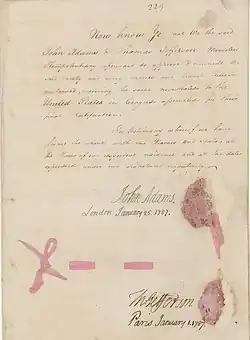 229
Now know Ye, that We the said
John Adams & Thomas Jefferson Ministers
Plenipotentiary aforesaid do approve & conclude the
said treaty and every article and clause therein
contained, reserving the same nevertheless to the
United States in Congress assembled for their
final Ratification.
In testimony whereof we have
signed the same with our Names and Seals, at
the places of our respective residence and at the dates
expressed under our signatures respectively.
John Adams.
London January 25. 1787.
Th: Jefferson
Paris January 1. 1787.